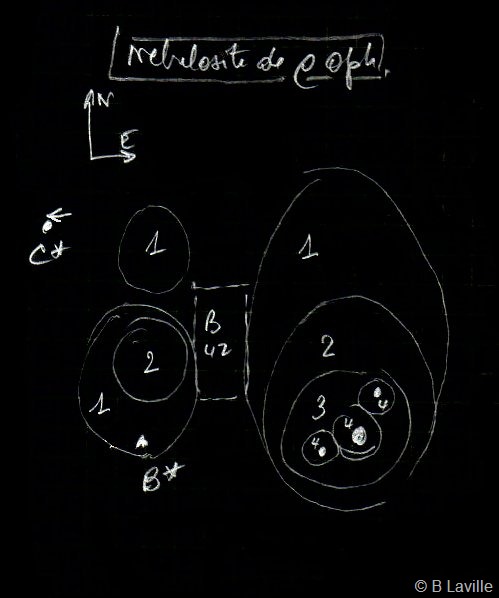 Nebulosite de ρ Oph.
N
E
C*
1
1
B
42
2
2
1
3
4
4
4
A
B*
© B Laville